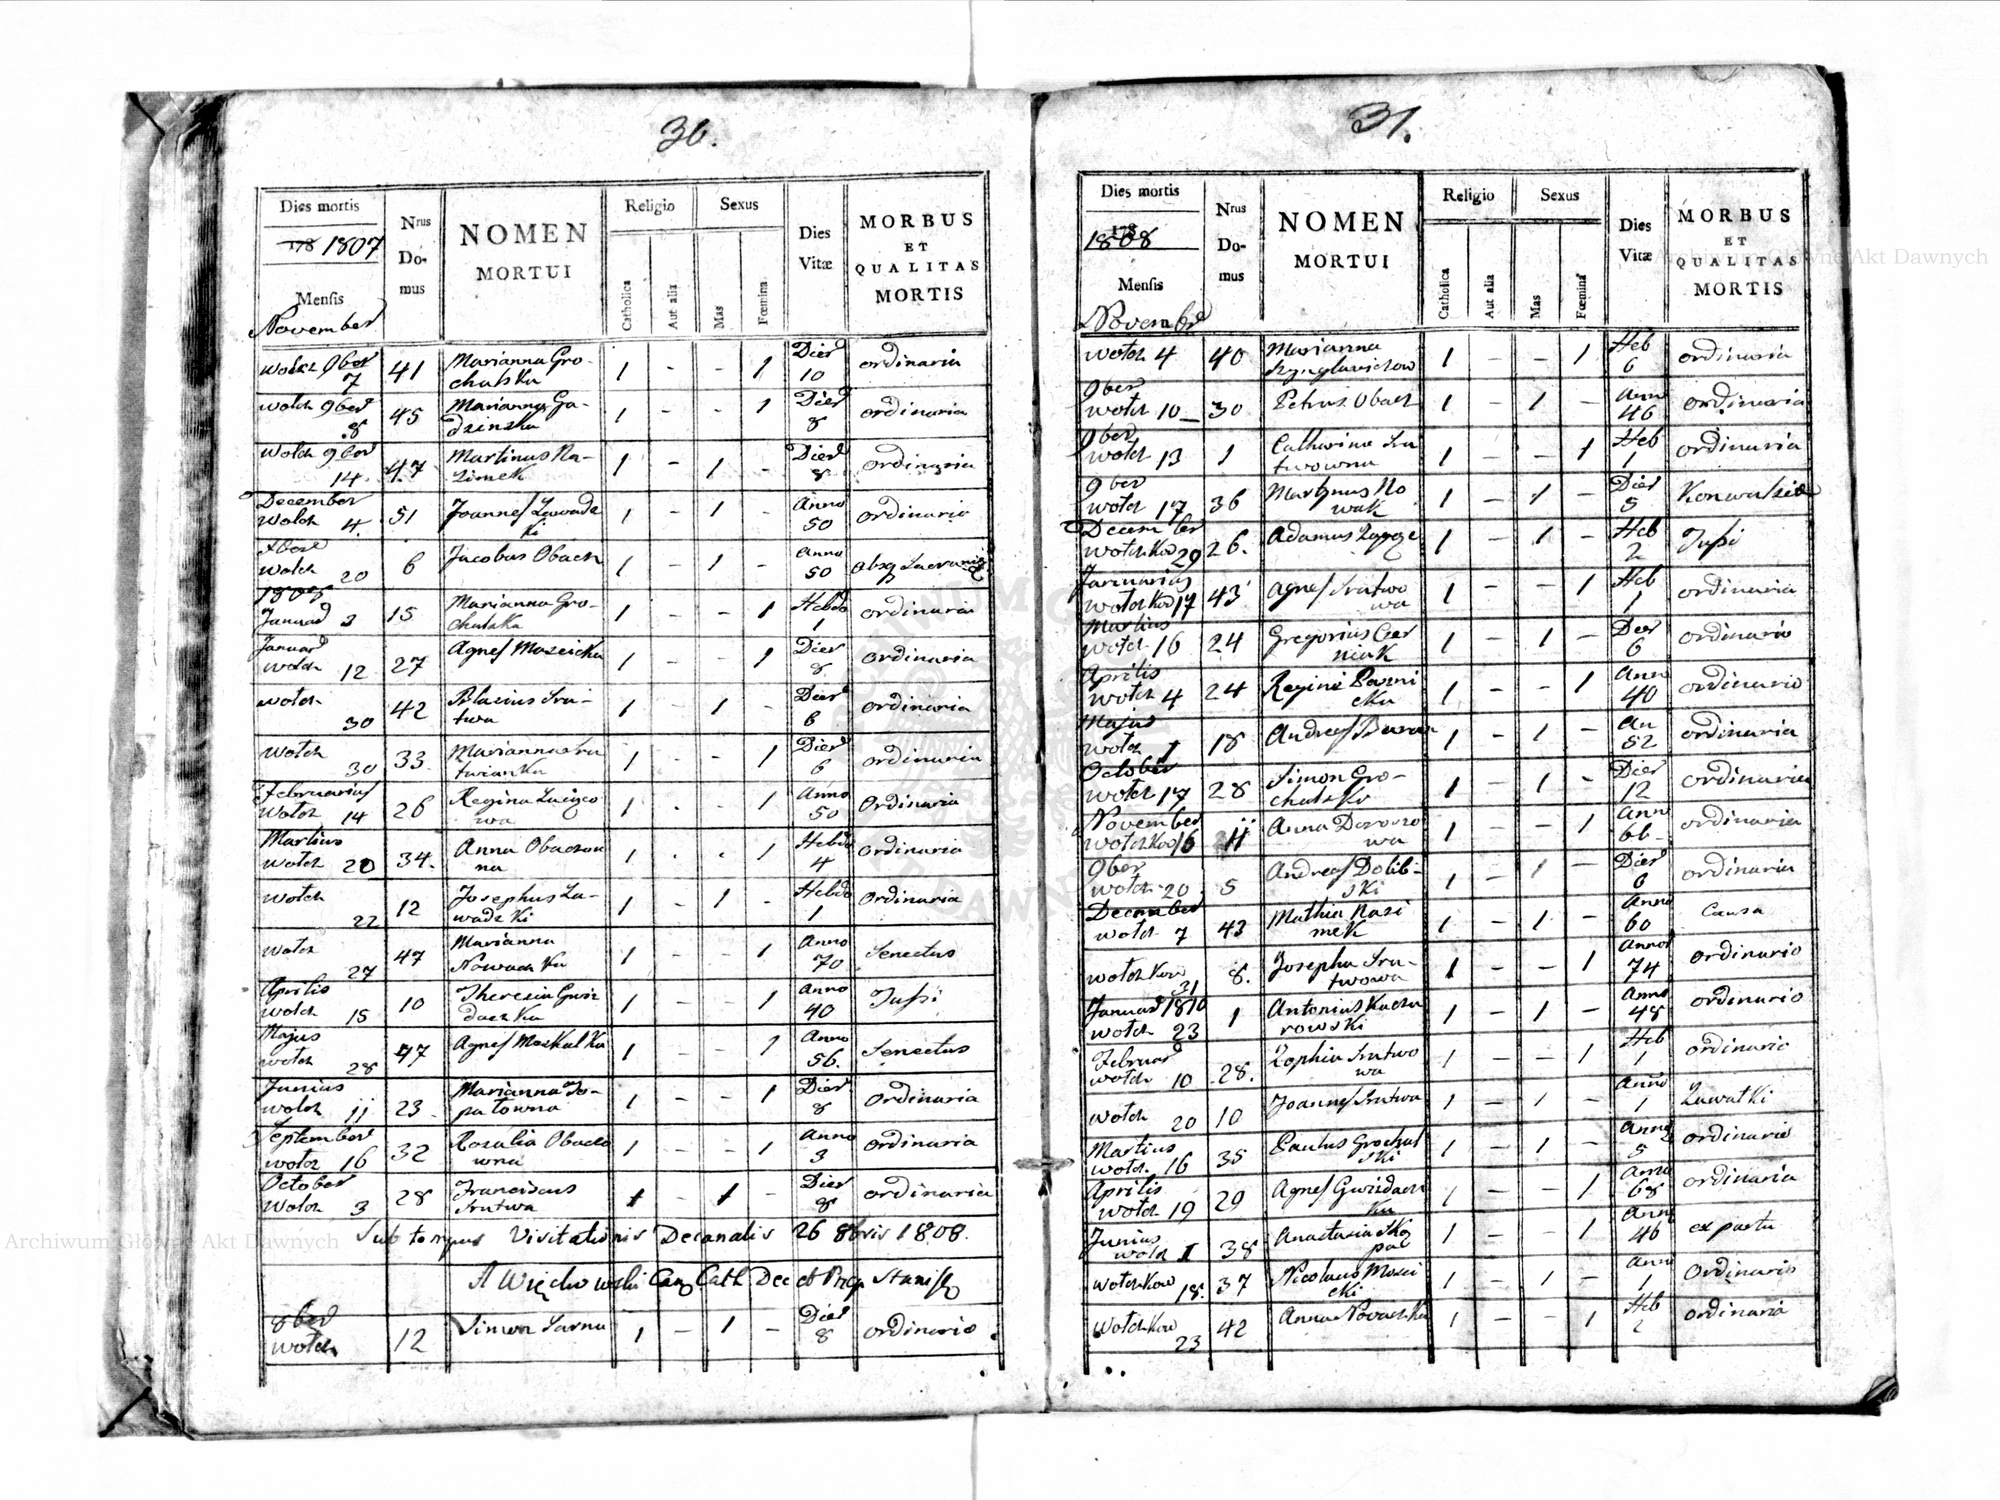 36.
Dies mortis
178 1807
Mensis
November
Nrus
Do-
mus
NOMEN
MORTUI
Religio
Catholica
Aut alia
Sexus
Mas
Fœmina
Dies
Vitæ
MORBUS
ET
QUALITAS
MORTIS
wolch 9ber 7 41 Marianna Gro-
chulska 1 - - 1 Dier 10 ordinaria
wolch 9ber 8 45 Marianna Ga-
dzinska 1 - - 1 Dier 8 ordinaria
wolch 9ber 14. 47 Martinus Ra-
zimek 1 - 1 - Dier 8 ordinaria
December
wolch 4. 51 Joannes Zawadz
ki 1 - 1 - Anno 50 ordinario
wolch 20 6 Jacobus Obach 1 - 1 - Anno 50
Januar 3 15 Marianna Gro-
chulska 1 - - 1 Hebdo 1 ordinaria
Januar
wolch 12 27 Agnes Moseicka 1 - - 1 Dier 8 ordinaria
wolch 30 42 Blasius Sru-
twa 1 - 1 - Dier 6 ordinaria
wolch 30 33 Marianna Sru
twianka 1 - - 1 Dier 6 ordinaria
Februarius
wolch 14 26 Regina
wa 1 . - 1 Anno 50 Ordinaria
Martius
wolch 20 34. Anna Obachow
na 1 . . 1 Hebdo 4 ordinaria
wolch 22 12 Josephus Za-
wadzki 1 - 1 - Hebdo 1 ordinaria
wolch 27 47 Marianna
Nowachka 1 - - 1 Anno 70 Senectus
Aprilis
wolch 15 10 Theresia Gwiz
daczka 1 - - 1 Anno 40 Tussi
Majus
wolch 28 47 Agnes Moskalka 1 - - 1 Anno 56. Senectus
Junius
wolch 11 23 Marianna So-
patowna 1 - - 1 Dier 8 ordinaria
September
wolch 16 32 Rosalia Obacho
wna 1 - - 1 Anno 3 ordinaria
October
wolch 3 28 Franciscus
Srutwa 1 - 1 - Dier 8 ordinaria
Sub tempus Visitationis Decanalis 26 8bris 1808.
A Więckowski Can Cath Dec et Prep Stanisl
8ber
wolch 12 Simon Sarna 1 - 1 - Dier 8 ordinario
31.
Dies mortis
178
1808
Mensis
Novembr
Nrus
Do-
mus
NOMEN
MORTUI
Religio
Catholica
Aut alia
Sexus
Mas
Fœmina
Dies
Vitæ
MORBUS
ET
QUALITAS
MORTIS
wolch 4 40 Marianna
1 - - 1 Heb 6 ordinaria
9ber
wolch 10 30 Petrus Obach 1 - 1 - Anno 46 ordinaria
9ber
wolch 13 1 Catharina Sru
twowna 1 - - 1 Heb 1 ordinaria
9ber
wolch 17 36 Martinus No
wak 1 - 1 - Dier 5 Konwulsie
December
wolchkow 29 26. Adamus 1 - 1 - Heb 2 Tussi
Januarius
wolchkow 17 43 Agnes Srutwo
wa 1 - - 1 Heb 1 ordinaria
Martius
wolch 16 24 Gregorius Czer
niak 1 - 1 - Dier 6 ordinario
Aprilis
wolch 4 24 Regina
1 - - 1 Anno 40 ordinario
Majus
wolch 1 18 Andreas Baran 1 - 1 - An 52 ordinaria
October
wolch 17 28 Simon Gro-
chulski 1 - 1 - Dier 12 ordinaria
November
wolchkow 16 11 Anna
wa 1 - - 1 Anno 66 ordinaria
9ber
wolch 20 5 Andreas Dolib-
ski 1 - 1 - Dier 6 ordinaria
December
wolch 7 43 Mathia Razi
mek 1 - 1 - Anno 60 Causa
wolchkow 31 8. Josepha Sru-
twowa 1 - - 1 Annor 74 ordinario
Januar 1810
wolch 23 1 Antonius Kacza
rowski 1 - 1 - Anno 48 ordinario
Februar
wolch 10 28. Zophia Srutwo
wa 1 - - 1 Heb 1 ordinario
wolch 20 10 Joannes Srutwa 1 - 1 - Anno 1 Zawalki
Martius
wolch. 16 35 Paulus Grochul
ski 1 - 1 - Anno 5 ordinario
Aprilis
wolch 19 29 Agnes Gwizdach
ka 1 - - 1 Anno 68 ordinaria
Junius
wolch 1 38 Anastasia
1 - - 1 Anno 46 ex partu
wolchkow 18. 37 Nicolaus Mosci
cki 1 - 1 - Anno 1 Ordinario
wolchkow 23 42 Anna Novachka 1 - - 1 Heb 2 ordinaria
Archiwum Główne Akt Dawnych
Archiwum Główne Akt Dawnych